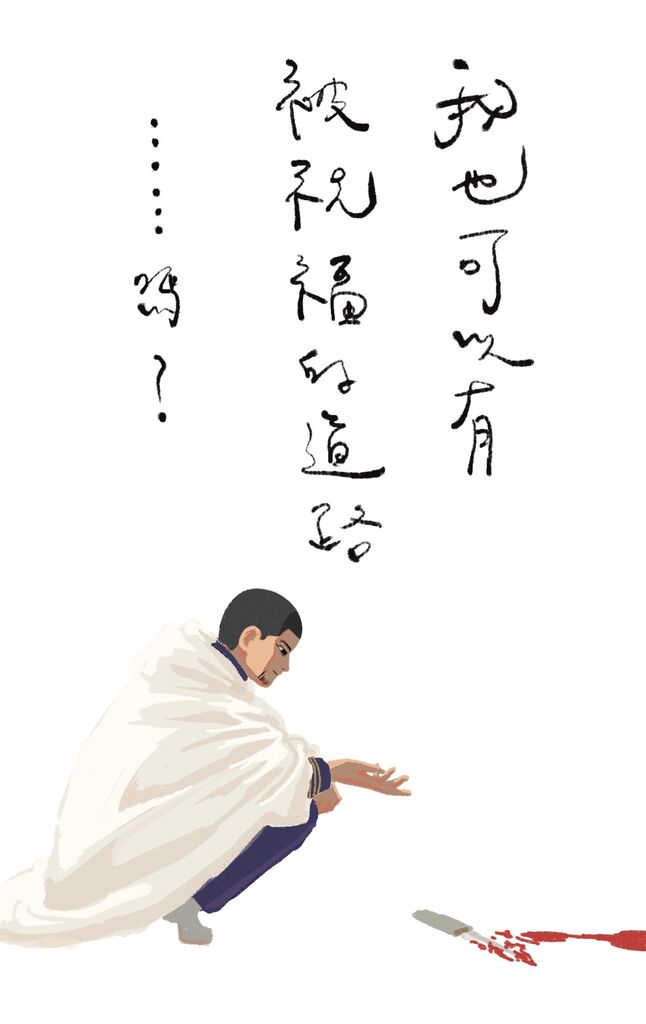 我也可以有
被祝福的道路
……嗎？